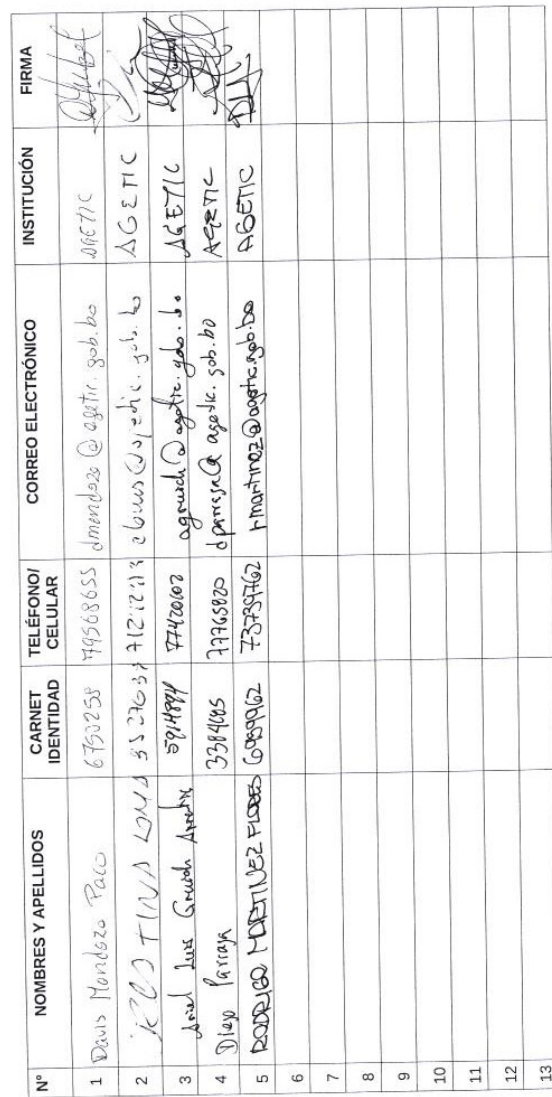 Nº NOMBRES Y APELLIDOS CARNET IDENTIDAD TELÉFONO/ CELULAR CORREO ELECTRÓNICO INSTITUCIÓN FIRMA
1 Davis Mendoza Paco 6750258 79568655 dmendoza@agetic.gob.bo AGETIC
2 AGETIC
3 Ariel Luis 77420602 @agetic.gob.bo AGETIC
4 Diego Parraga 77765820 dparraga@agetic.gob.bo AGETIC
5 RODRIGO MARTINEZ FLORES 6959962 73739762 rmartinez@agetic.gob.bo AGETIC
6
7
8
9
10
11
12
13